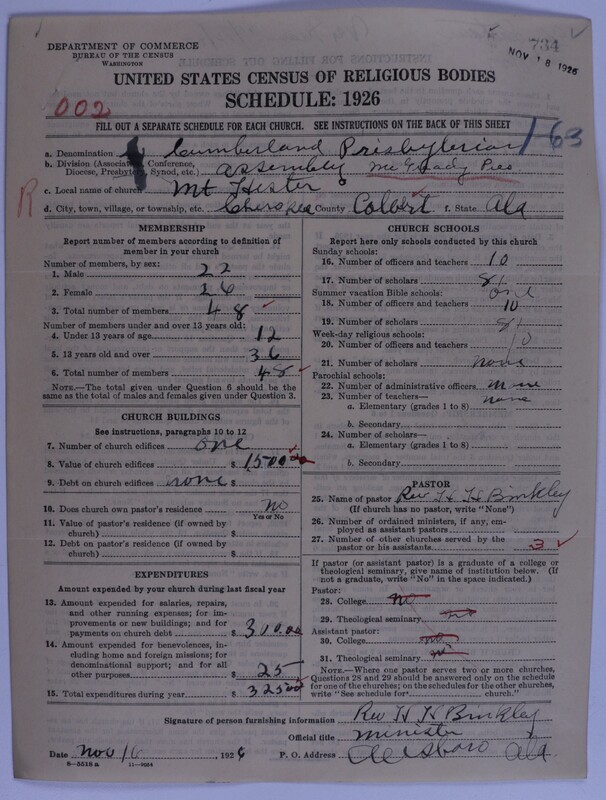 734
NOV 18 1926
DEPARTMENT OF COMMERCE
BUREAU OF THE CENSUS
WASHINGTON
UNITED STATES CENSUS OF RELIGIOUS BODIES
SCHEDULE: 1926
002
FILL OUT A SEPARATE SCHEDULE FOR EACH CHURCH. SEE INSTRUCTIONS ON THE BACK OF THIS SHEET
1-63
a. Denomination Cumberland Presbyterian
b. Division (Association, Conference, Diocese, Presbytery, Synod, etc.) assembly McGready Pres
R
c. Local name of church Mt Hester
d. City, town, village, or township, etc. Cherokee County Colbert f. State Ala
MEMBERSHIP
Report number of members according to definition of member in your church
Number of members, by sex:
1. Male 22
2. Female 26
3. Total number of members 48
Number of members under and over 13 years old:
4. Under 13 years of age 12
5. 13 years old and over 36
6. Total number of members 48
NOTE.—The total given under Question 6 should be the same as the total of males and females given under Question 3.
CHURCH BUILDINGS
See instructions, paragraphs 10 to 12
7. Number of church edifices one
8. Value of church edifices $ 1500 00
9. Debt on church edifices none $
10. Does church own pastor's residence no
Yes or No
11. Value of pastor's residence (if owned by church) $
12. Debt on pastor's residence (if owned by church) $
EXPENDITURES
Amount expended by your church during last fiscal year
13. Amount expended for salaries, repairs, and other running expenses; for improvements or new buildings; and for payments on church debt $ 300.00
14. Amount expended for benevolences, including home and foreign missions; for denominational support; and for all other purposes $ 25
15. Total expenditures during year $ 325 00
CHURCH SCHOOLS
Report here only schools conducted by this church
Sunday schools:
16. Number of officers and teachers 10
17. Number of scholars 81
Summer vacation Bible schools: one
18. Number of officers and teachers 10
19. Number of scholars 81
Week-day religious schools:
20. Number of officers and teachers 10
21. Number of scholars none
Parochial schools:
22. Number of administrative officers none
23. Number of teachers— none
a. Elementary (grades 1 to 8)
b. Secondary
24. Number of scholars—
a. Elementary (grades 1 to 8)
b. Secondary
PASTOR
25. Name of pastor Rev H H Binkley
(If church has no pastor, write "None")
26. Number of ordained ministers, if any, employed as assistant pastors
27. Number of other churches served by the pastor or his assistants 3
If pastor (or assistant pastor) is a graduate of a college or theological seminary, give name of institution below. (If not a graduate, write "No" in the space indicated.)
Pastor:
28. College no
29. Theological seminary no
Assistant pastor:
30. College no
31. Theological seminary no
NOTE.—Where one pastor serves two or more churches, Questions 28 and 29 should be answered only on the schedule for one of the churches; on the schedules for the other churches, write "See schedule for church."
Signature of person furnishing information Rev H H Binkley
Official title minister
Date Nov 16, 1926 P. O. Address Allsboro Ala
8—5518 a 11—9264